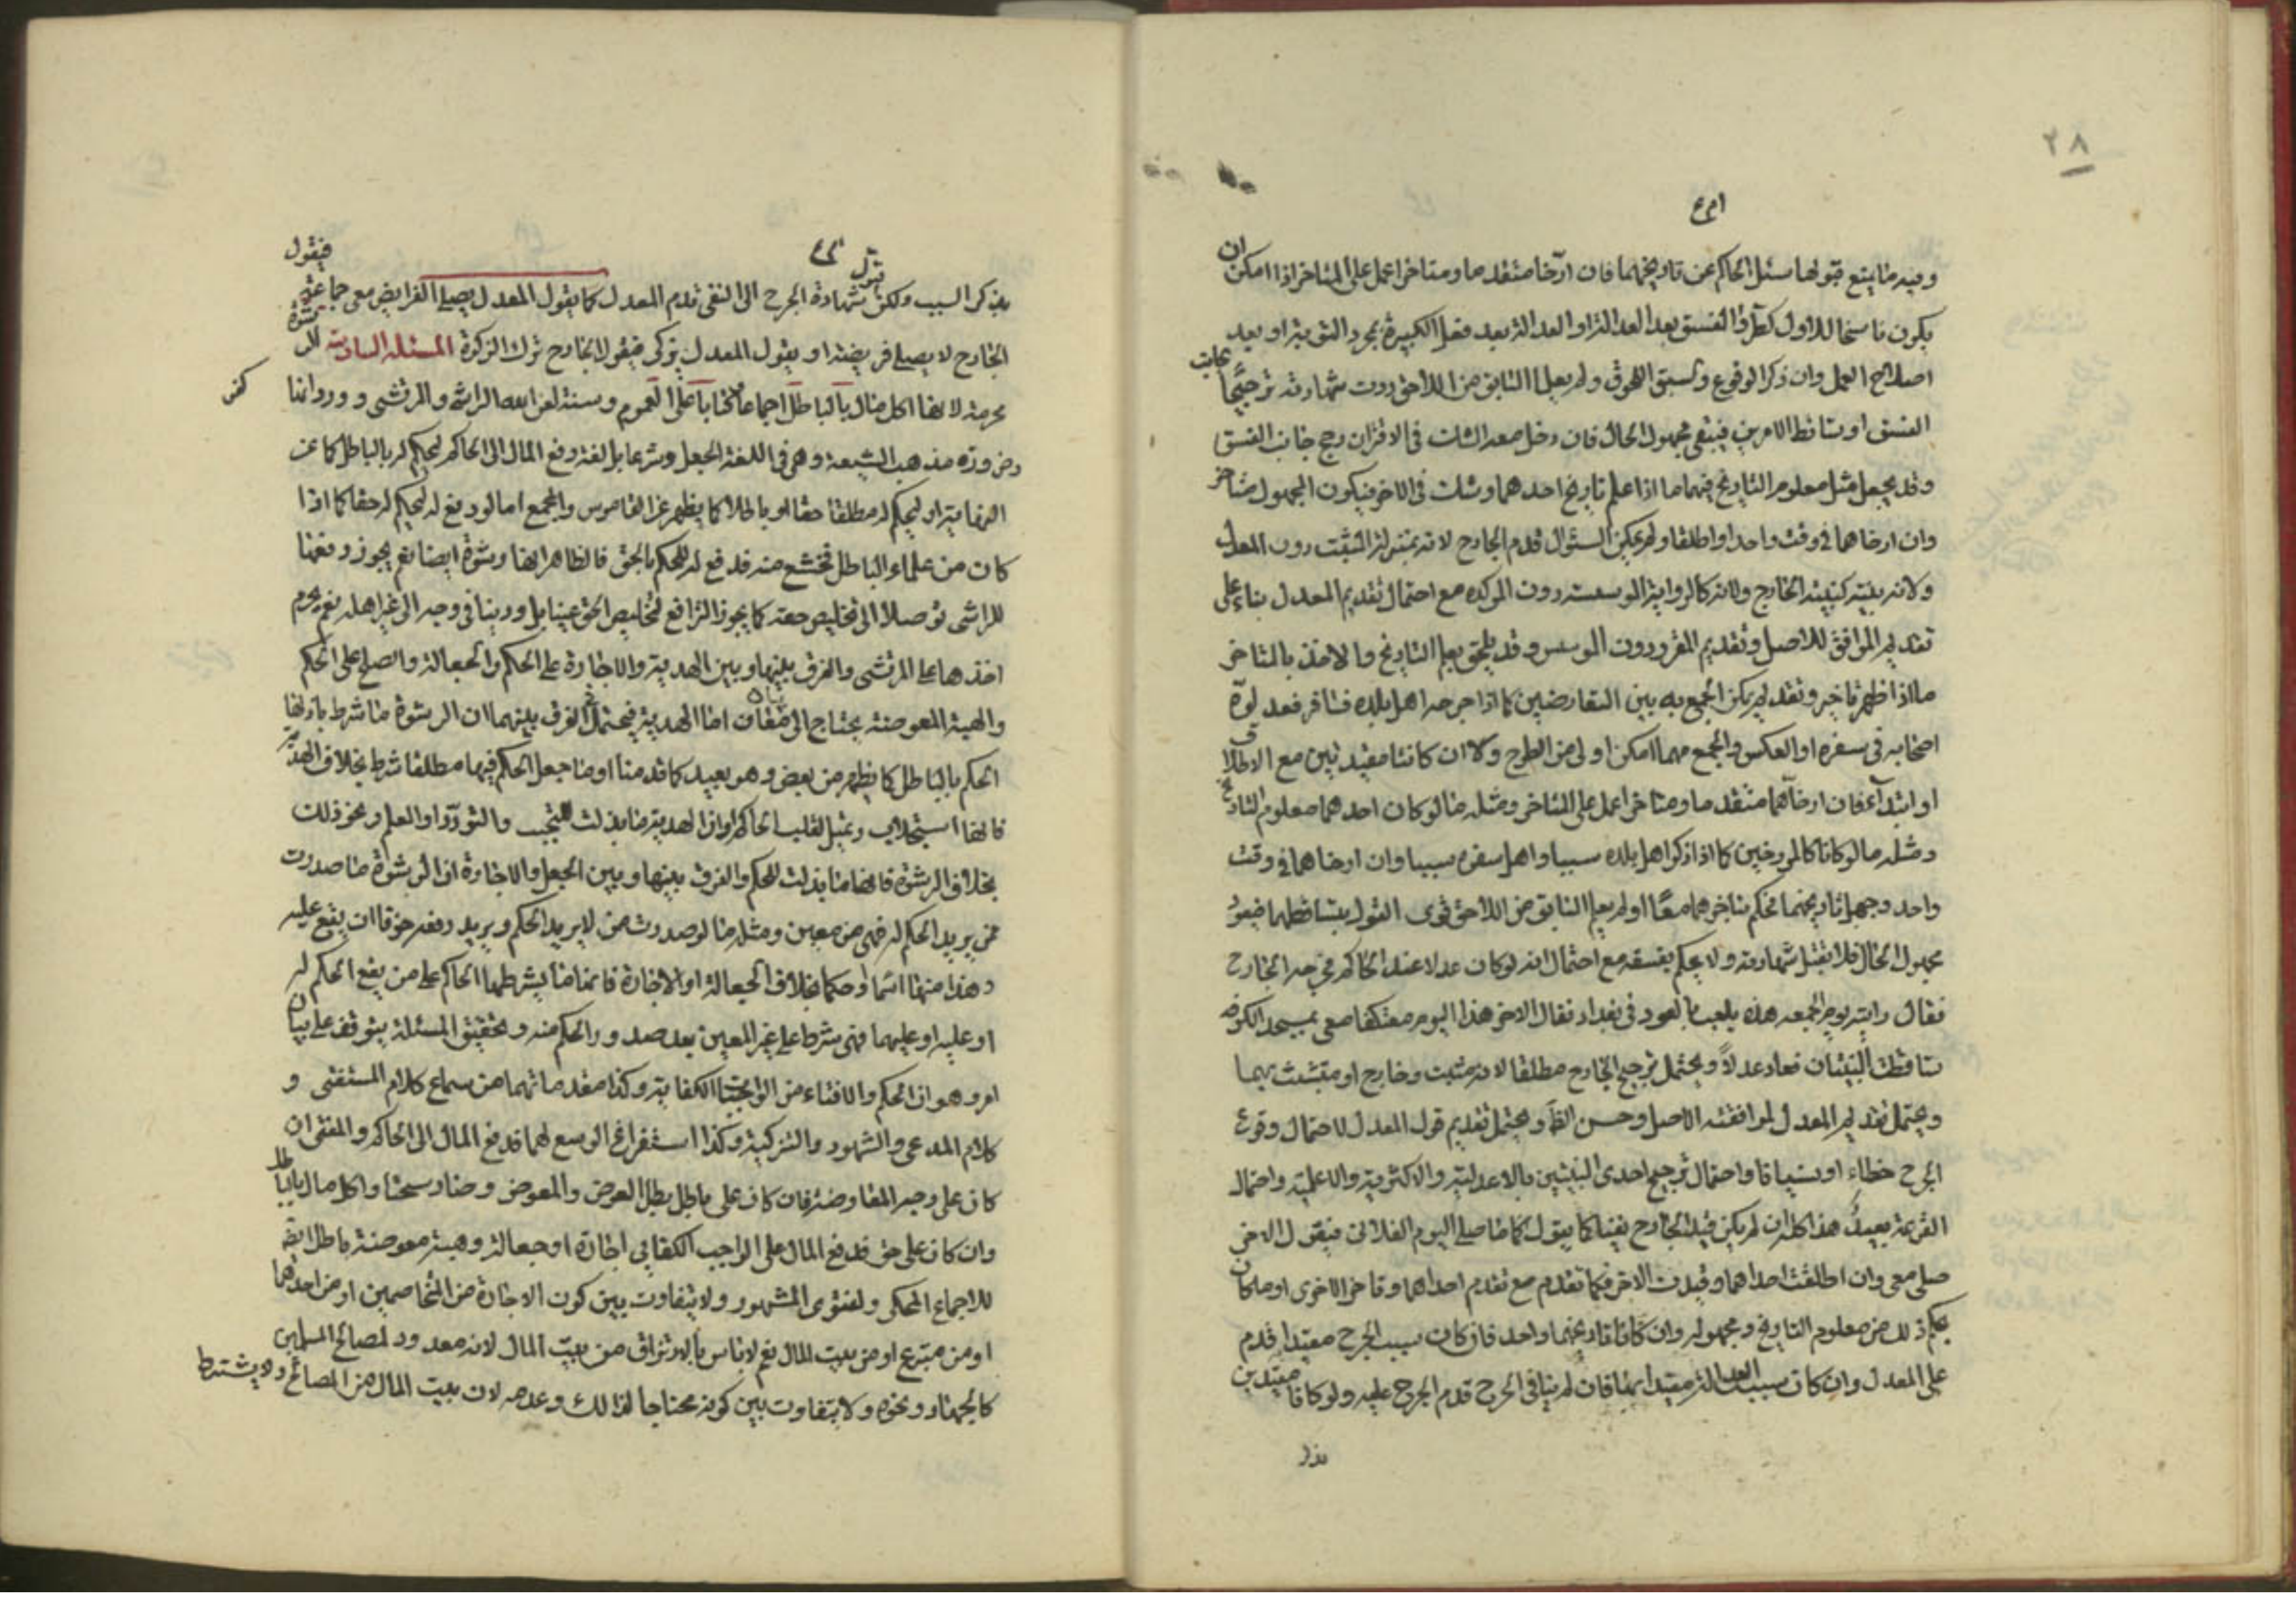 ٢٨
وفيه ما يمنع قبولها سئل الحاكم عن تاريخهما فان ارّخا متقدما ومتاخرا عمل على المتاخر اذا امكن ان
يكون ناسخا للاول كطرو الفسق بعد العدالة او العدالة بعد فعل الكبيرة بمجرد التوبة او بعد
اصلاح العمل وان ذكر الوقوع وسبق اللحوق ولم يعلم السابق من اللاحق ردت شهادته ترجيحا بجانب
الفسق او تساقط الامرين فيبقى مجهول الحال فان دخل معه الشك في الاقتران رجح جانب الفسق
وقد يجعل مثل معلوم التاريخ فيهما ما اذا علم تاريخ احدهما وشك في الاخر فيكون المجهول متاخر
وان ارخاهما في وقت واحد او اطلقا ولم يمكن السئوال قدم الجارح لانه بمنزلة المثبت دون المعدل
ولانه بينة كبينة الخارج ولانه كالرواية الموسسة دون الموكده مع احتمال تقديم المعدل بناء على
تقديم الموافق للاصل وتقديم المقرر دون الموسس وقد يلحق بعلم التاريخ والاخذ بالمتاخر
ما اذا ظهر تاخير وتقديم يمكن الجمع به بين المتعارضين كما اذا جرحه اهل بلده فسافر فعدلوه
اصحابه في سفره او العكس والجمع مهما امكن اولى من الطرح والا ان كانتا مقيدتين مع الاطلاق
او ابتداء فان ارخاهما متقدما ومتاخرا عمل على المتاخر ومثله ما لو كان احدهما معلوم التاريخ
ومثله ما لو كانا كالمورخين كما اذا ذكر اهل بلده سببا واهل سفره سببا وان ارخاهما في وقت
واحد وجهل تاريخهما فحكم بتاخرهما معًا او لم يعلم السابق من اللاحق قوى القول بتساقطهما فيعود
مجهول الحال فلا تقبل شهادته ولا يحكم بفسقه مع احتمال انه لو كان عدلا عند الحاكم فجرحه الجارح
فقال رايته يوم الجمعه هذه يلعب بالعود في بغداد فقال الاخر هذا اليوم معتكفا معى بمسجد الكوفه
تساقطت البينتان فعاد عدلاً ويحتمل ترجيح الجارح مطلقا لانه مثبت وخارج او متشبث بهما
ويحتمل تقديم المعدل لموافقته الاصل وحسن الظن ويحتمل تقديم قول المعدل لاحتمال وقوع
الجرح خطاء او نسيانا واحتمال ترجيح احدى البينتين بالاعدلية والاكثرية والاعلمية واحتمال
القرعة بعيدٌ هذا كله ان لم يكن قيد الجارح نفيا كما يقول كما ما صلى اليوم الفلانى فيقول الاخر
صلى معى وان اطلقت احداهما وقيدت الاخرى فكما تقدم مع تقدم احداهما وتاخر الاخرى او ما كان
بحكم ذلك من معلوم التاريخ ومجهوله وان كانا تاريخهما واحد فان كان سبب الجرح مقيدا قدم
على المعدل وان كان سبب العدالة مقيدا بما فان لم ينافى الجرح قدم الجرح عليه ولو كانا مقيدين
بذكر السبب ولكن تئول شهادة الجرح الى النفى قدم المعدل كما يقول المعدل يصلى الفرايض معى جماعة فيقول
الجارح لا يصلى فريضته او يقول المعدل يزكى فيقول الجارح ترك الزكوة المسئلة السادسة الرشوة
محرمة لانها اكل مال بالباطل اجماعا وكتابا على العموم وسنة لعن الله الراشى والمرتشى وورد انها كفر
وضرورة مذهب الشيعة وهى في اللغة الجعل وشرعا بل لغة دفع المال الى الحاكم ليحكم له بالباطل كما عن
النهاية او ليحكم له مطلقا حقا او باطلا كما يظهر عن القاموس والمجمع اما لو دفع له ليحكم له حقا كما اذا
كان من علماء الباطل فخشى منه فدفع له للحكم بالحق فالظاهر انها رشوة ايضا نعم يجوز دفعها
للراشى توصلا الى تخليص حقه كما يجوز الترافع لتخليص الحق عينا بل ودينا في وجه الى غير اهله نعم يحرم
اخذها على المرتشى والفرق بينها وبين الهدية والاجارة على الحكم والجعالة والصلح على الحكم
والهبة المعوضة يحتاج الى بيان اما الهدية فيحتمل الفرق بينهما ان الرشوة ما شرط باذلها
الحكم بالباطل كما يظهر من بعض وهو بعيد كما قدمنا او ما جعل الحكم فيها مطلقا شرط بخلاف الهدية
فانها استجلاب وتميل لقلب الحاكم او ان الهدية ما بذلت للتحبب والتودّد او العلم ونحو ذلك
بخلاف الرشوة فانها ما بذلت للحكم والفرق بينها وبين الجعل والاجارة ان الرشوة ما صدرت
ممن يريد الحكم له فهى من معين ومثله ما لو صدرت ممن لا يريد الحكم ويريد دفعه خوفا ان يقع عليه
وهذا منهما اثما وحكما بخلاف الجعالة او الاجارة فانها ما يشرطها الحاكم على من يقع الحكم له
او عليه او عليهما فهى شرط على غير المعين بعد صدور الحكم منه وتحقيق المسئلة يتوقف على بيان
امر وهو ان الحكم والافتاء من الواجبات الكفاية وكذا مقدماتهما من سماع كلام المستفتى و
كلام المدعى والشهود والتزكية وكذا استفراغ الوسع لهما فدفع المال الى الحاكم والمفتى ان
كان على وجه المعاوضة فان كان على باطل بطل العوض والمعوض وصار سحتا واكل مال بالباطل
وان كان على حق فدفع المال على الواجب الكفاي اجارة او جعالة وهبة معوضة باطل ايضا
للاجماع المحكى ولفتوى المشهور ولا يتفاوت بين كون الاجارة من المتخاصمين او من احدهما
او من متبرع او من بيت المال نعم لا باس بالارتزاق من بيت المال لانه معدود لمصالح المسلمين
كالجهاد ونحوه ولا يتفاوت بين كونه محتاجا لذلك وعدمه لان بيت المال من المصالح ولا يشترط